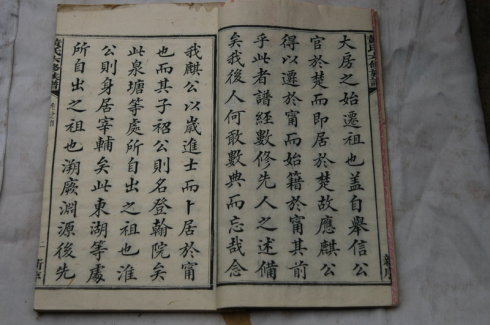 大房之始遷祖也蓋自舉信公
官於楚而即居於楚故應麒公
得以遷於甯而始籍於甯其前
乎此者譜經數修先人之述備
矣我後人何敢數典而忘哉念
我麒公以歲進士而卜居於甯
也而其子祒公則名登翰院矣
此泉塘等處所自出之祖也淮
公則身居宰輔矣此東湖等處
所自出之祖也溯厥淵源後先